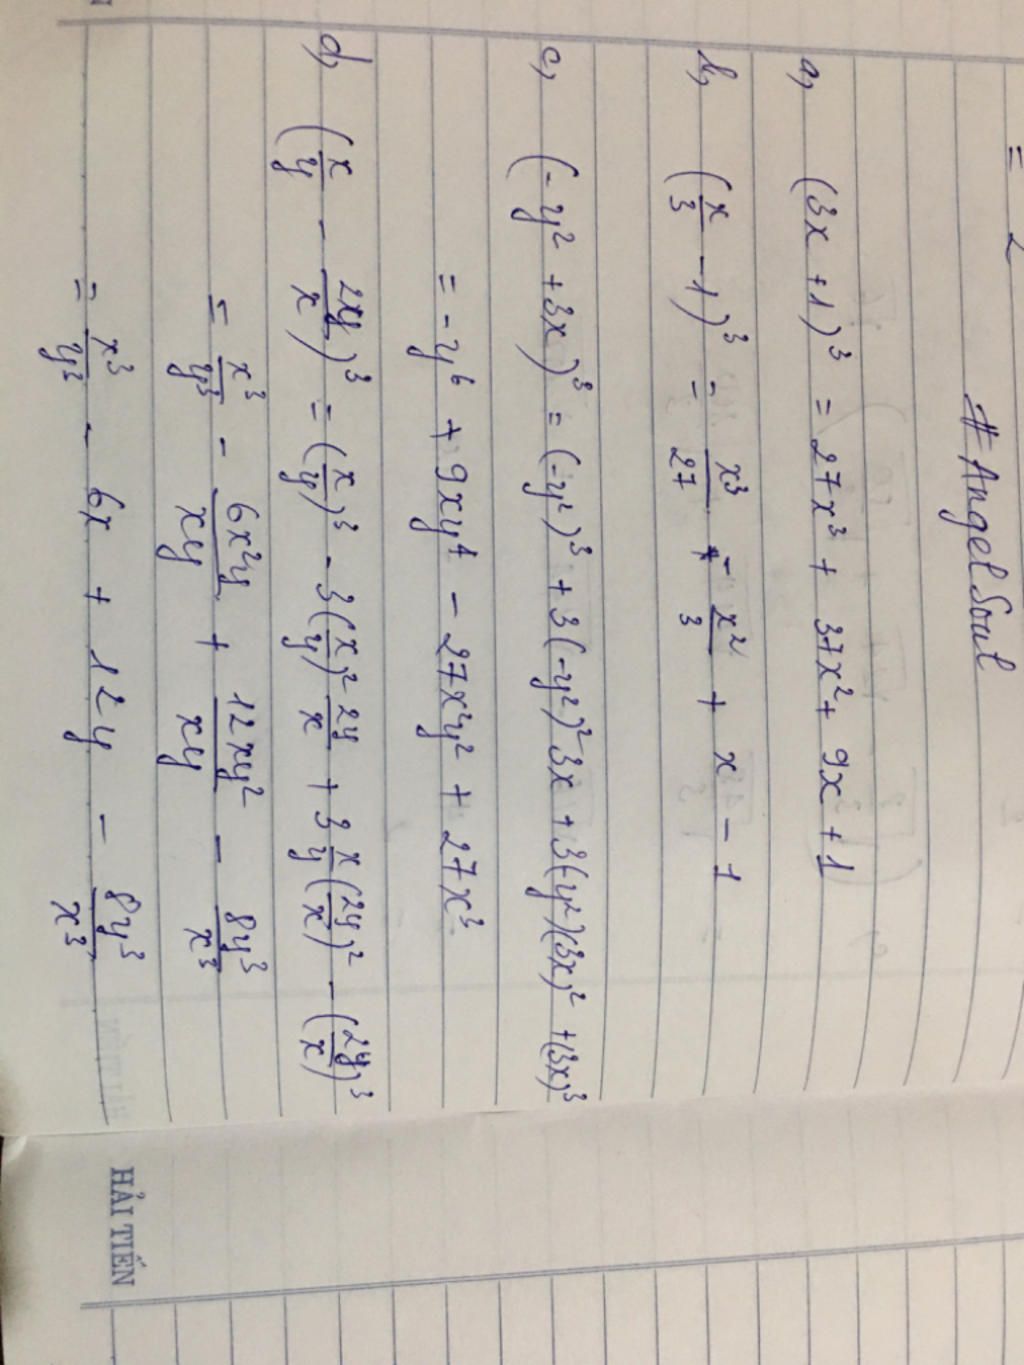 = 2
# AngelSoul
a, (3x + 1)³ = 27x³ + 37x² + 9x + 1
b, (x/3 - 1)³ = x³/27 - x²/3 + x - 1
c, (-y² + 3x)³ = (-y²)³ + 3(-y²)² 3x + 3(y²)(3x)² + (3x)³
= -y⁶ + 9xy⁴ - 27x²y² + 27x³
d, (x/y - 2xy/x)³ = (x/y)³ - 3(x/y)² 2y/x + 3 x/y (2y/x)² - (2y/x)³
= x³/y³ - 6x²y/xy + 12xy²/xy - 8y³/x³
= x³/y³ - 6x + 12y - 8y³/x³
HẢI TIẾN